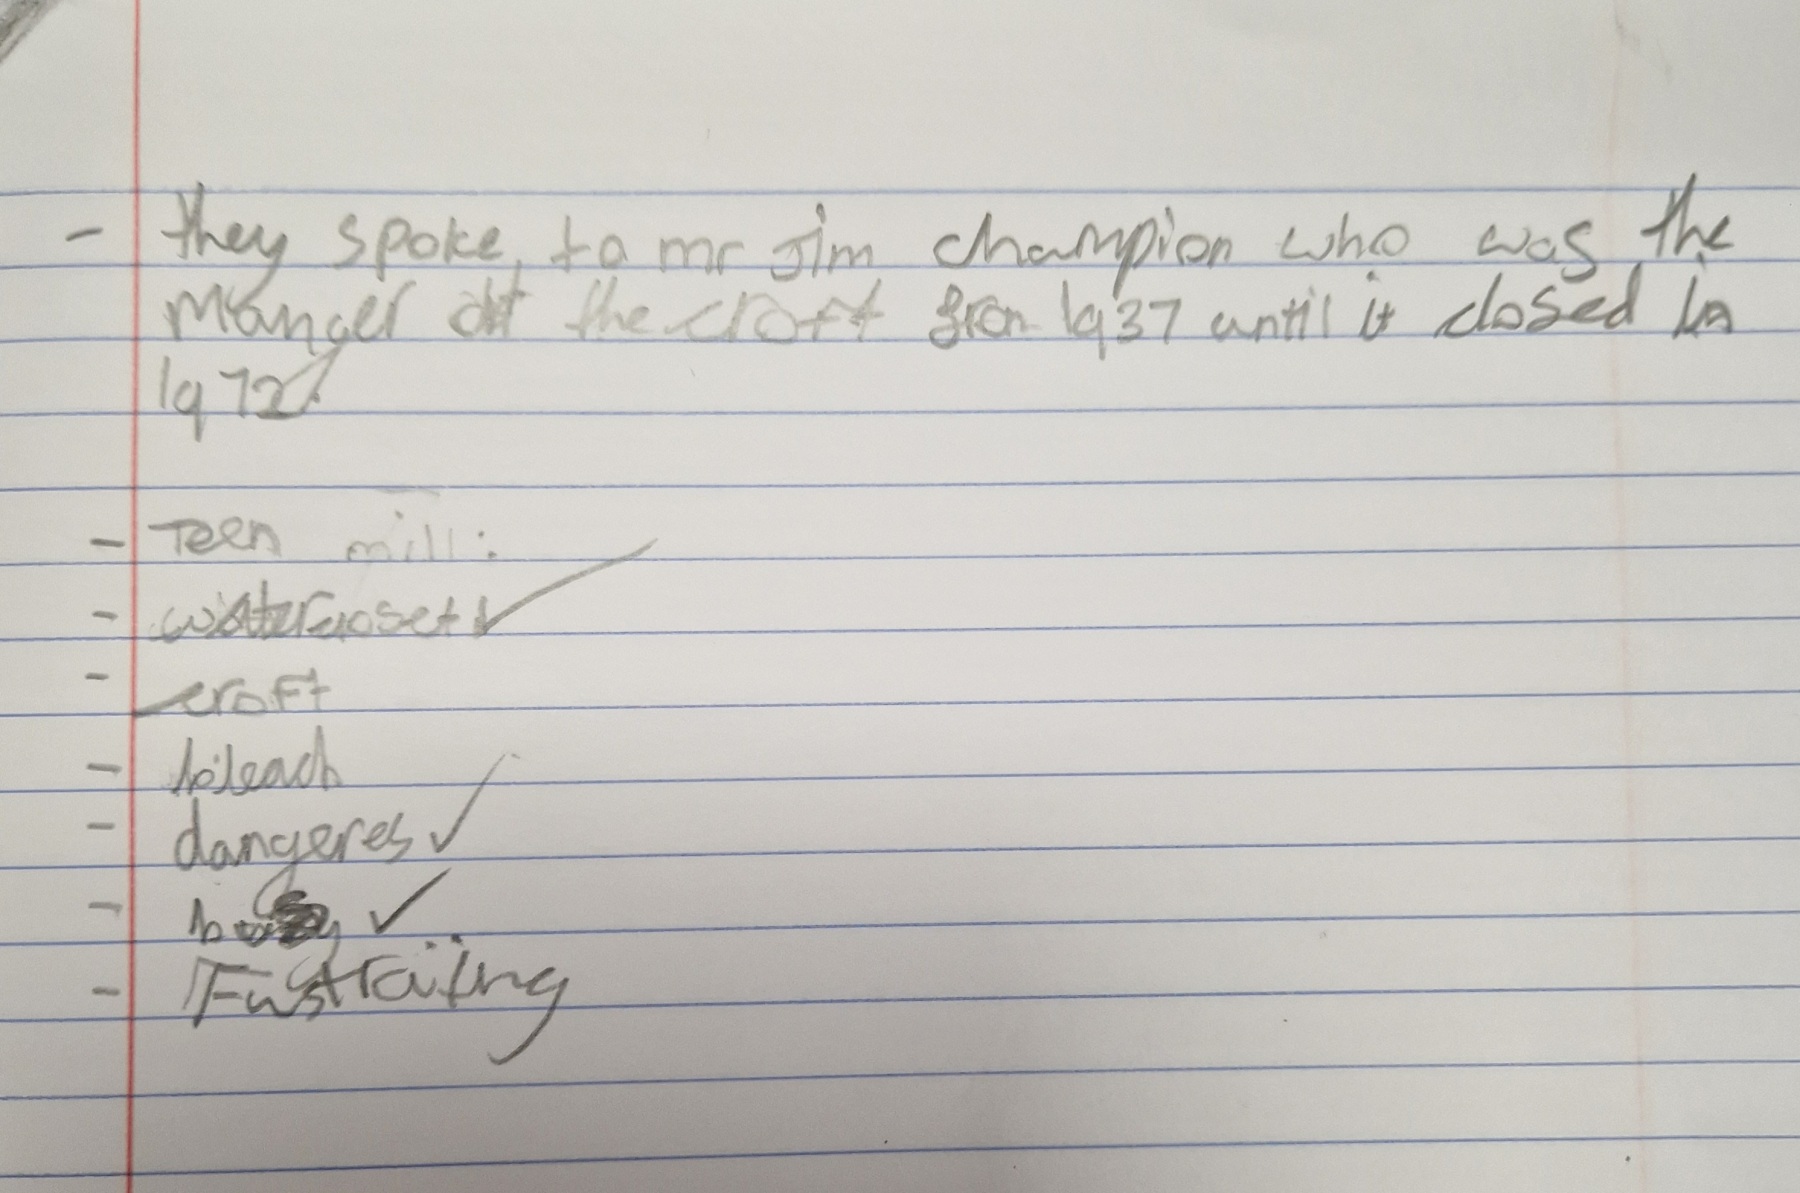 - they spoke to mr Jim champion who was the
manger at the croft from 1937 until it closed in
1972.
- Teen mill:
- watercloset ✓
- croft
- bleach
- dangeres ✓
- ✓
- Fustraiting